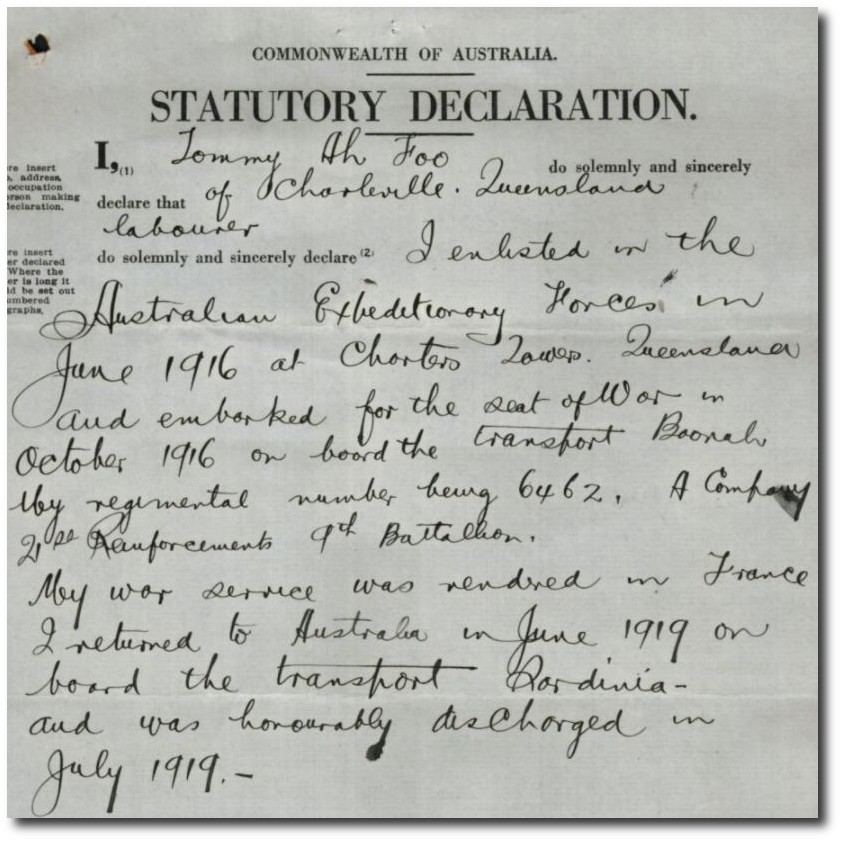 COMMONWEALTH OF AUSTRALIA.
STATUTORY DECLARATION.
I,(1) Tommy Ah Foo do solemnly and sincerely
declare that of Charleville. Queensland
labourer
do solemnly and sincerely declare (2) I enlisted in the
Australian Expeditionary Forces in
June 1916 at Charters Towers. Queensland
and embarked for the seat of War in
October 1916 on board the transport Boonah
My regimental number being 6462, A Company
21st Reinforcements 9th Battallion.
My war service was rendred in France
I returned to Australia in June 1919 on
board the transport
and was honourably discharged in
July 1919.-
re insert
, address,
occupation
rson making
eclaration.
re insert
er declared
Where the
er is long it
ld be set out
umbered
graphs.